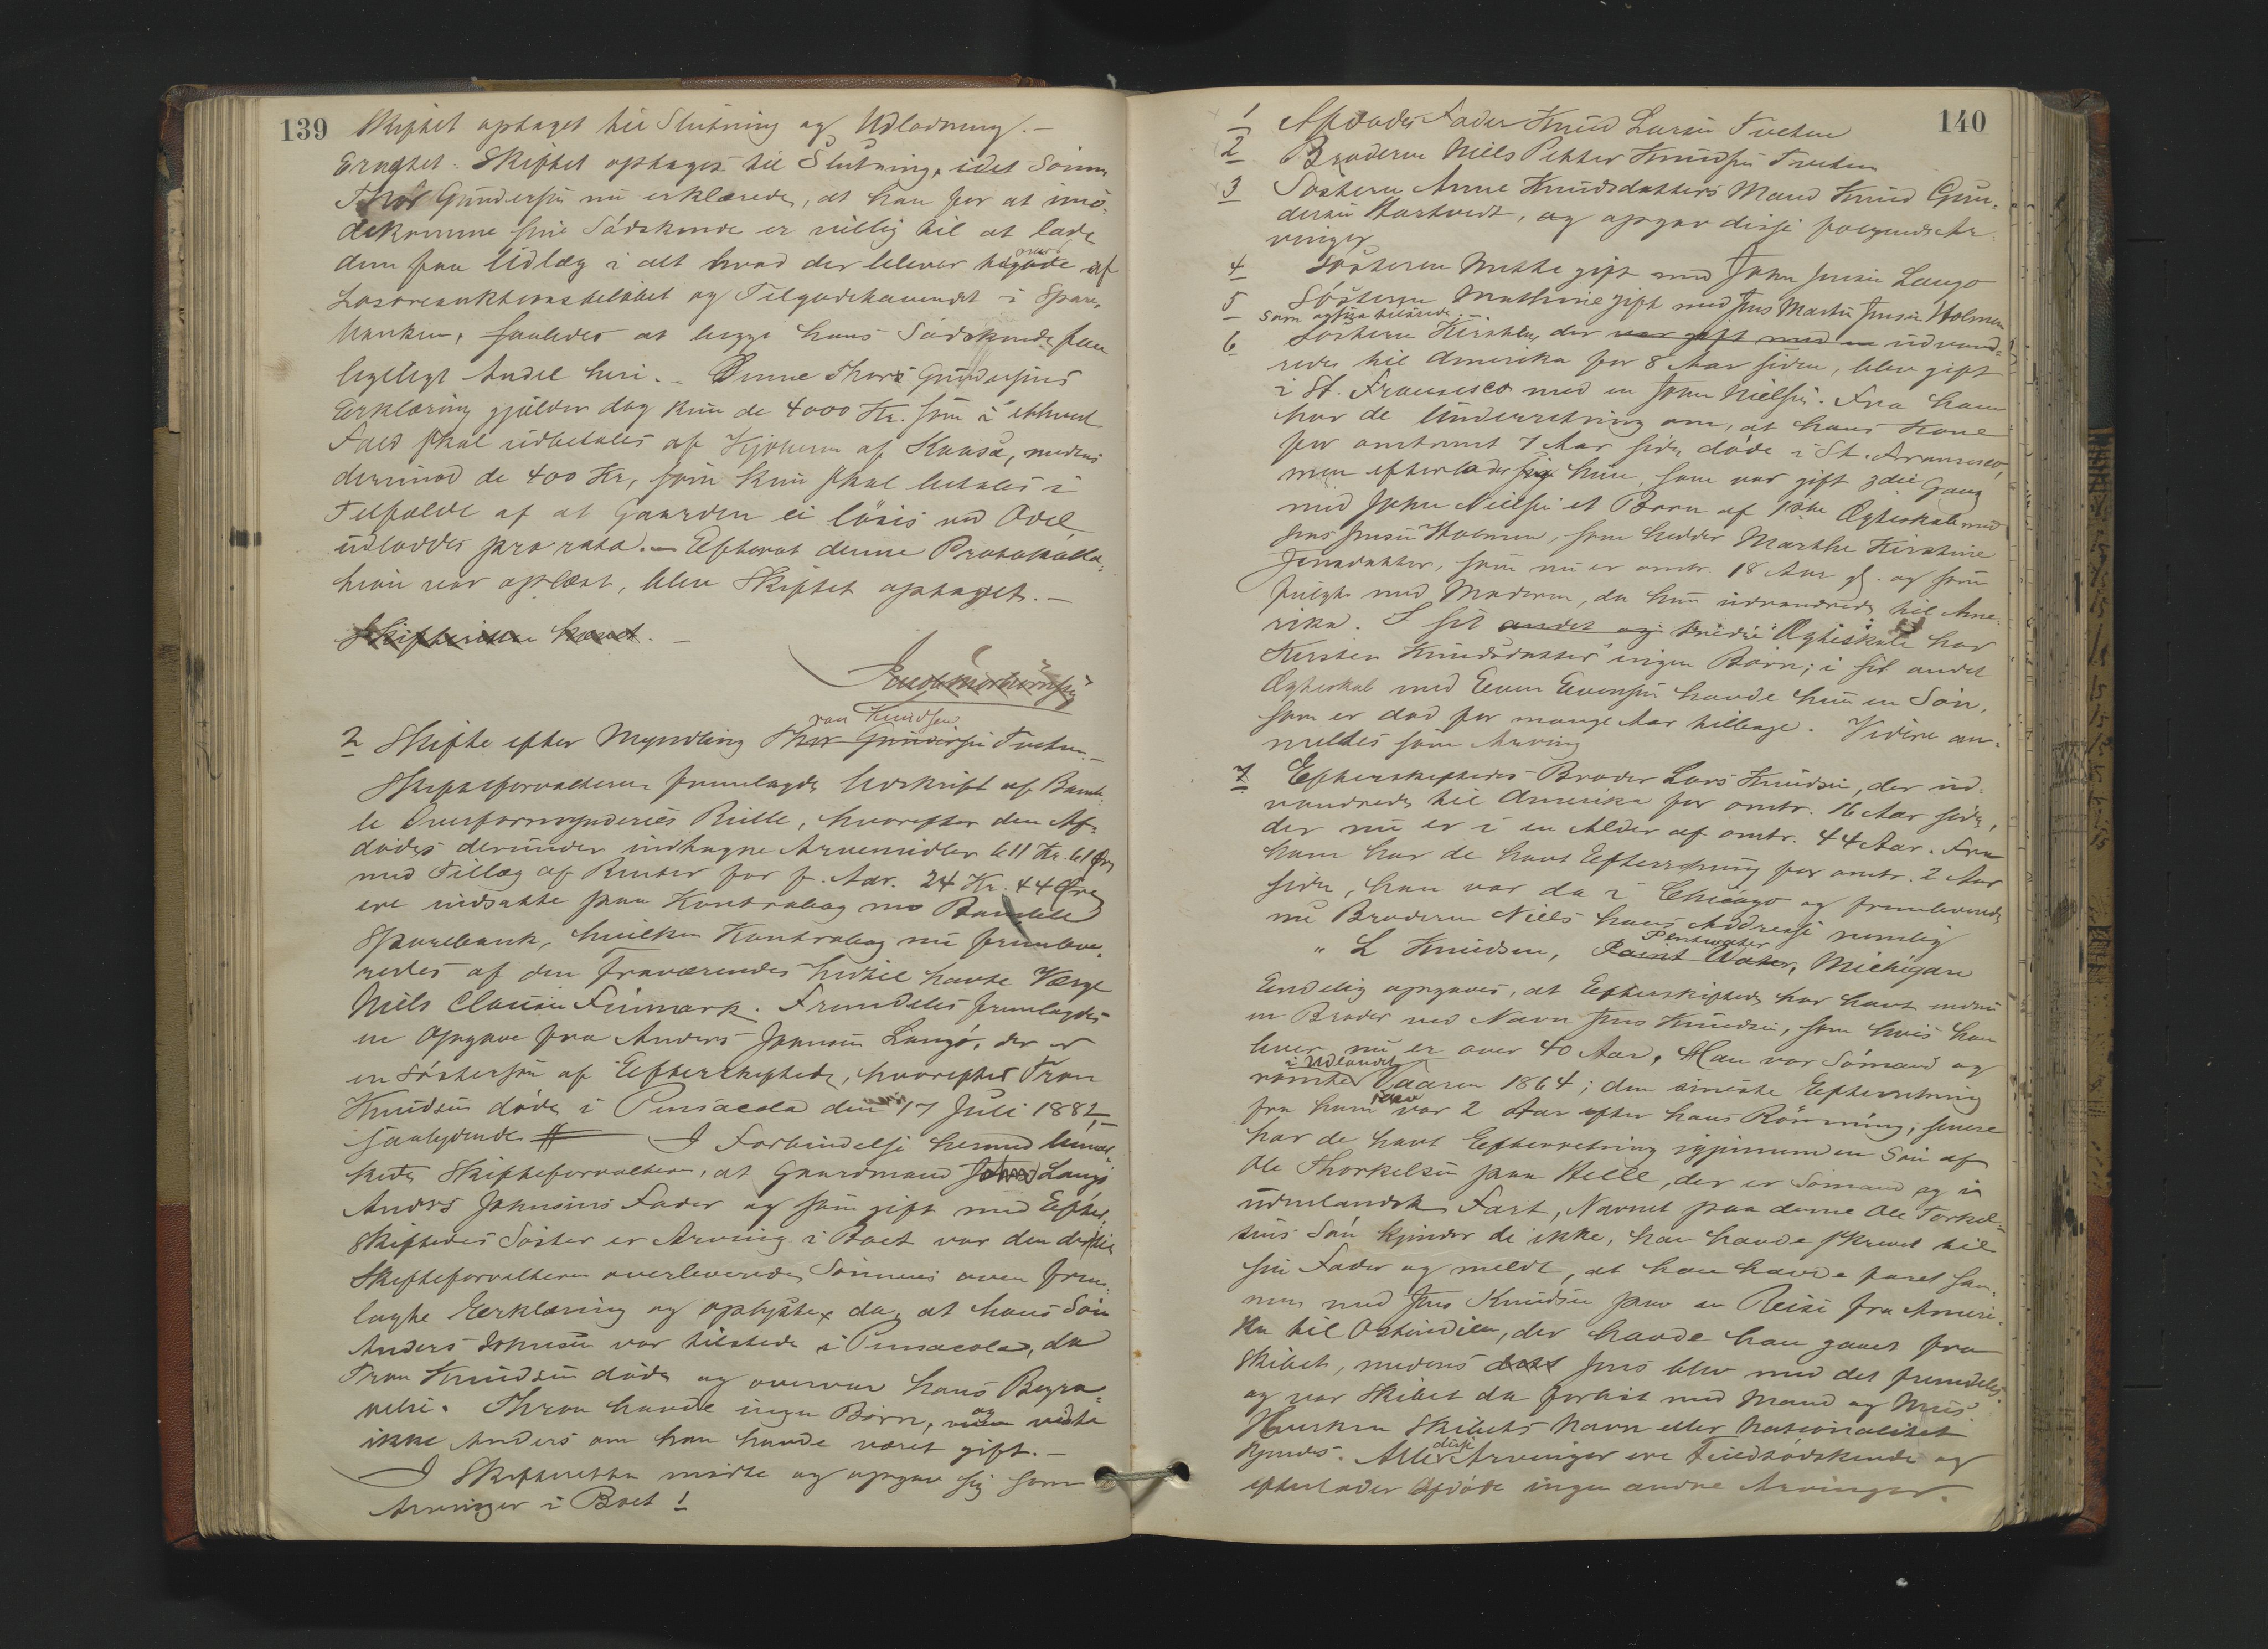 139
Skiftet optaget til Slutning og Udlodning. —
Eragtet: Skiftet optages til Slutning, idet Sönnen
Thor Gundersen nu erklærede, at han for at imö-
dekomme sine Södskende er villig til at lade
dem faa Udlæg i alt hvad der bliver tilovers af
Losoreauktionsbelöbet og Tilgodehavendet i Spare-
banken, saaledes at begge hans Södskende faar
ligeligt Andel heri. — Denne Thors Gundersens
Erklæring gjælder dog kun de 4000 Kr. som i ethvert
Fald skal udbetales af Kjöberen af, medens
derimod de 400 Kr, som kun skal betales i
Tilfælde af at Gaarden ei löses ved Odel
udloddes pro rata. — Efterat denne Protokolla-
tion var oplæst, blev Skiftet optaget. —
Skifteretten hævet. —
2 Skifte efter Myndling Thor Gundersen Tron Knudsen Tveten. —
Skifteforvalteren fremlagde Udskrift af Bamb-
le Overformynderies Rulle, hvorefter den Af-
dödes derunder indtagne Arvemidler 611 Kr. 61 Öre
med Tillæg af Renter for f. Aar. 24 Kr. 44 Öre
ere indsatte paa Kontrabog med Bamble
Sparebank, hvilken Kontrabog nu fremleve-
redes af den fraværendes hidtil havte Værge
Niels Clausen Finmark. Fremdeles fremlagdes
en Opgave fra Anders Johnsen Langö, der er
en Söstersön af Efterskiftede, hvorefter Tron
Knudsen döde i Pensacola den 17 Juli 1882,
saalydende # — I Forbindelse hermed bemær-
kede Skifteforvalteren, at Gaardmand John Langö
Anders Johnsens Fader og som gift med Efter-
skiftedes Söster er Arving i Boet var den der til
Skifteforvalteren overleverede Sönnens oven frem-
lagte Erklæring og oplyste da, at hans Sön
Anders Johnsen var tilstede i Pensacola, da
Tron Knudsen döde og overvar hans Begra-
velse. Thron havde ingen Börn, og vidste
ikke Anders om han havde været gift. —
I Skifteretten mödte og opgav sig som
Arvinger i Boet !
140
1 Afdödes Fader Knud Larsen Tveten
2 Broderen Niels Petter Knudsen Tveten
3 Sösteren Anne Knudsdatters Mand Knud Gun-
dersen Hartvedt, og opgav disse fölgende Ar-
vinger
4 Sösteren Mette gift med John Jensen Langö
5 Sösteren Mathine gift med Jens Martin Jensen Holmen
som ogsaa tilstede. —
6 Sösteren Kirsten, der var gift med en udvand-
rede til Amerika for 8 Aar siden, blev gift
i St. Francisco med en John Nielsen. Fra ham
har de Underretning om, at hans Kone
for omtrent 7 Aar siden döde i St. Francisco,
men efterlader sig hun, som var gift 3die Gang
med John Nielsen et Barn af 1ste Ægteskab med
Jens Jensen Holmen, som hedder Marthe Kirstine
Jensdatter, som nu er omtr. 18 Aar gl. og som
fulgte med Moderen, da hun udvandrede til Ame-
rika. I sit andet og tredie Ægteskab har
Kirsten Knudsdatter ingen Börn; i sit andet
Ægteskab med Even Evensen havde hun en Sön,
som er död for mange Aar tilbage. Videre an-
meldtes som Arving
7 Efterskiftedes Broder Lars Knudsen, der ud-
vandrede til Amerika for omtr. 16 Aar siden,
der nu er i en Alder af omtr. 44 Aar. Fra
ham har de havt Efterretning for omtr. 2 Aar
siden, han var da i Chicago og fremleverede
nu Broderen Niels hans Addresse nemlig
" L Knudsen, Paint Water Pentwater, Michigan
Endelig opgaves, at Efterskiftede har havt endnu
en Broder ved Navn Jens Knudsen, som hvis han
lever nu er over 40 Aar. Han var Sömand og
römte i Udlandet Vaaren 1864; den eneste Efterretning
fra ham var 2 Aar efter hans Römning; senere
har de havt Efterretning igjennem en Sön af
Ole Thorkelsen paa Helle, der er Sömand og i
udenlandsk Fart, Navnet paa denne Ole Torkel-
sens Sön kjender de ikke, han havde skrevet til
sin Fader og meldt, at han havde faret sam-
men med Jens Knudsen paa en Reise fra Ameri-
ka til Ostindien, der havde han gaaet fra
Skibet, medens Jens blev med det fremdeles
og var Skibet da forlist med Mand og Mus.
Hverken Skibets Navn eller Nationalitet
kjendes. Alle disse Arvinger ere Fuldsödskende og
efterlader Afdöde ingen andre Arvinger.